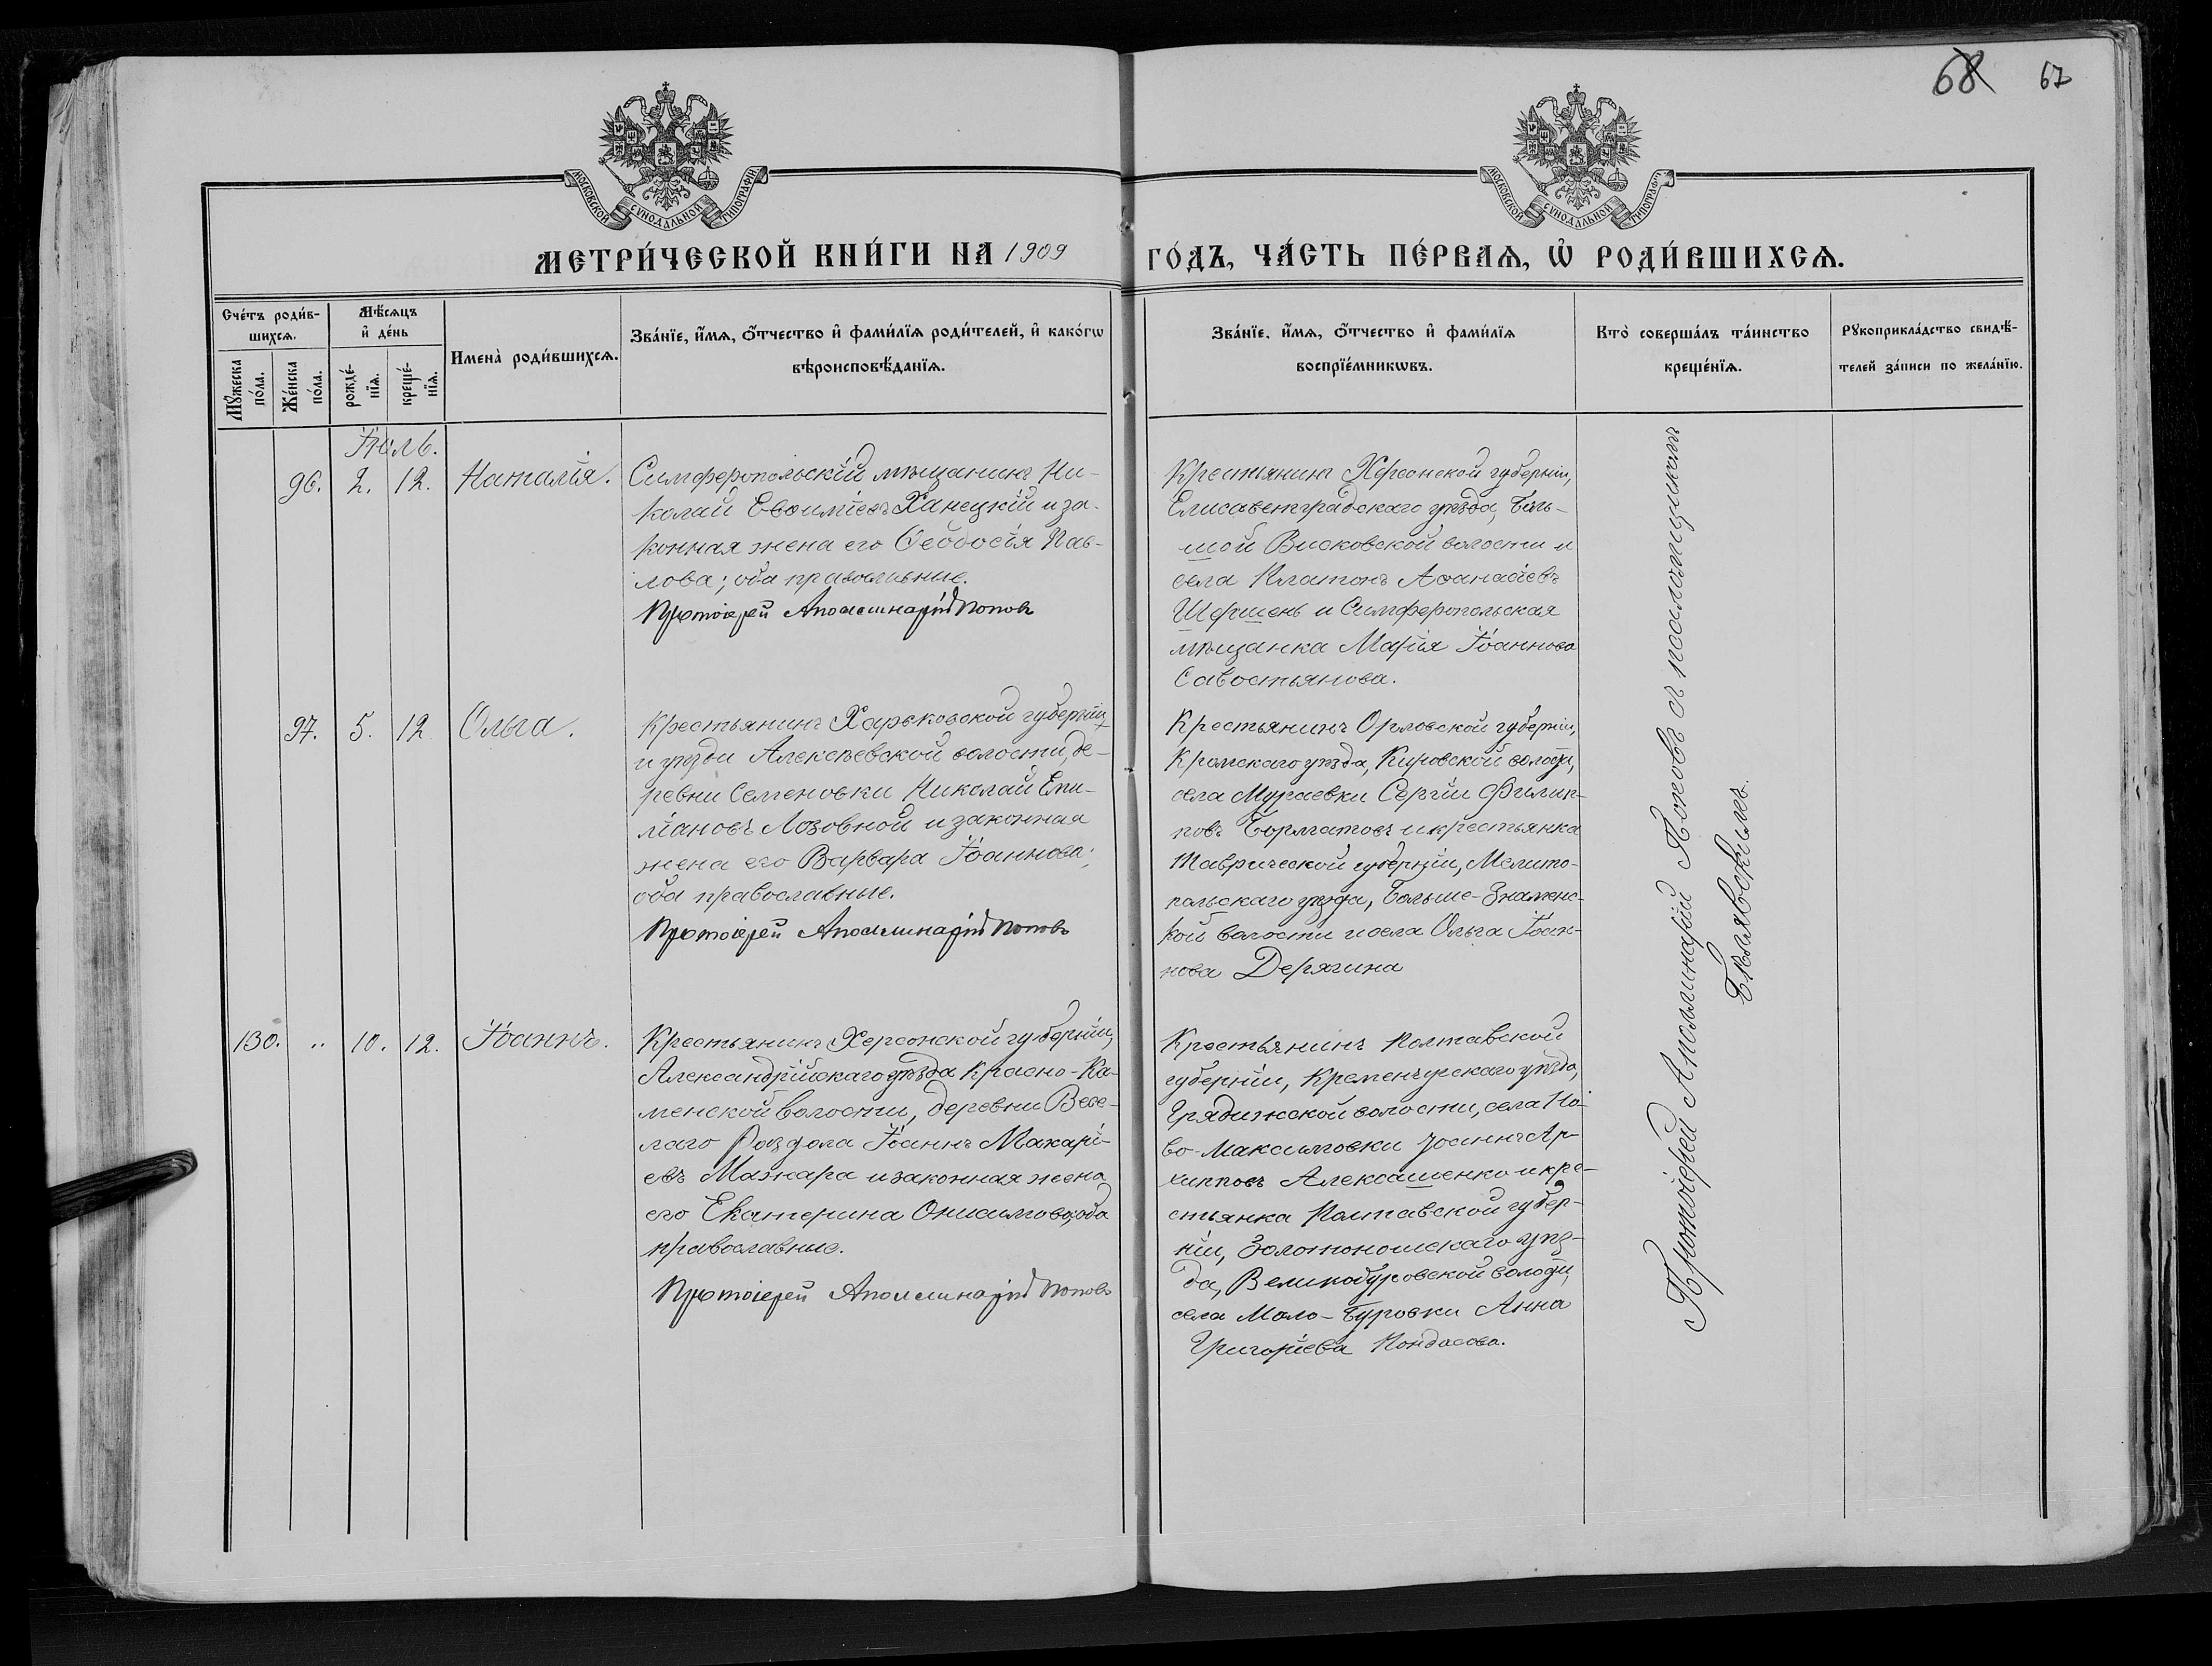 68 67
МОСКОВСКОЙ СУНОДАЛЬНОЙ ТИПОГРАФІИ
МОСКОВСКОЙ СУНОДАЛЬНОЙ ТИПОГРАФІИ
МЕТРИ́ЧЕСКОЙ КНИ́ГИ НА 1909 ГО́ДЪ, ЧА́СТЬ ПЕ́РВАѦ, Ѡ҆ РОДИ́ВШИХСѦ.
Сче́тъ роди́в-
шихсѧ.
Мꙋ́жеска
по́ла.
Же́нска
по́ла.
Мѣ́сѧцъ
и҆ де́нь
рожде́-
нїѧ.
креще́-
нїѧ.
Имена̀ роди́вшихсѧ.
Зва́нїе, и҆́мѧ, ѻ҆́тчество и҆ фами́лїѧ роди́телей, и҆ како́гѡ
вѣроисповѣ́данїѧ.
Зва́нїе, и҆́мѧ, ѻ҆́тчество и҆ фами́лїѧ
воспрїе́мникѡвъ.
Кто̀ соверша́лъ та́инство
креще́нїѧ.
Рꙋкоприкла́дство свидѣ́-
телей за́писи по жела́нїю.
Іюль.
96. 2. 12. Наталія.
Симферопольскій мѣщанинъ Ни-
колай Евѳиміевъ Ханецкій и за-
конная жена его Ѳеодосія Пав-
лова; оба православные.
Протоіерей Аполлинарій Поповъ
Крестьянинъ Херсонской губерніи,
Елисаветградскаго уѣзда, Боль-
шой Висковской волости и
села Платонъ Аѳанасіевъ
Шершень и Симферопольская
мѣщанка Марія Іоаннова
Савостьянова.
97. 5. 12. Ольга.
Крестьянинъ Харьковской губерніи
и уѣзда Алексѣевской волости, де-
ревни Семеновки Николай Еми-
ліановъ Лозовной и законная
жена его Варвара Іоаннова;
оба православные.
Протоіерей Аполлинарій Поповъ
Крестьянинъ Орловской губерніи,
Кромскаго уѣзда, Кировской волости,
села Мураевки Сергій Филип-
повъ Борматовъ и крестьянка
Таврической губерніи, Мелито-
польскаго уѣзда, Больше-Знаменс-
кой волости и села Ольга Іоан-
нова Дерягина
130. " 10. 12. Іоаннъ.
Крестьянинъ Херсонской губерніи,
Александрійскаго уѣзда Красно-Ка-
менской волости, деревни Весе-
лаго Раздола Іоаннъ Макарі-
евъ Мажара и законная жена
его Екатерина Онисимова, оба
православные.
Протоіерей Аполлинарій Поповъ
Крестьянинъ Полтавской
губерніи, Кременчугскаго уѣзда,
Градижской волости, села Но-
во-Максимовки Іоаннъ Ар-
хипповъ Алексашенко и кре-
стьянка Полтавской губер-
ніи, Золотоношскаго уѣз-
да, Великобуровской волости,
села Мало-Буровки Анна
Григоріева Кондасова.
Протоіерей Аполлинарій Поповъ съ псаломщикомъ
Бѣлявскимъ.